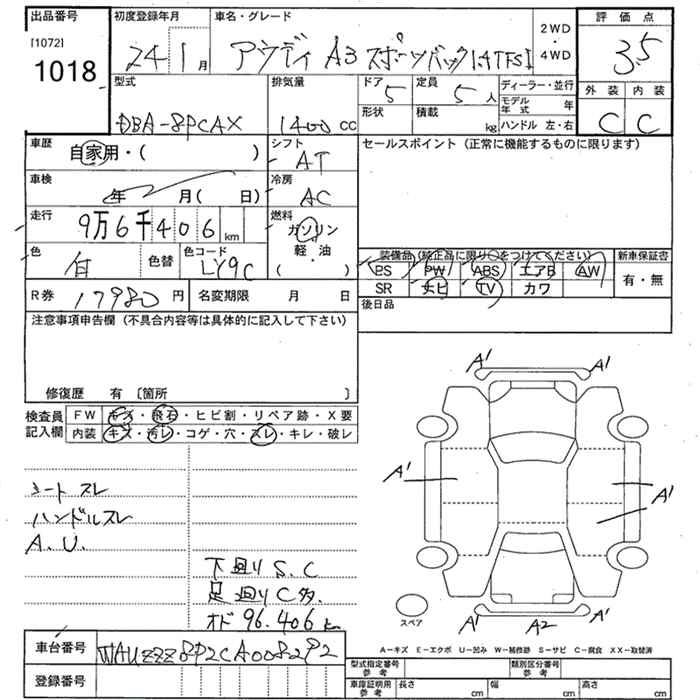 出品番号 初度登録年月 車名・グレード 2WD・4WD 評価点
[1072]
1018 24 1月 アウディ A3 スポーツバック 1.4TFSI 3.5
型式 排気量 ドア 5 定員 5人 ディーラー・並行 外装 内装
DBA-8PCAX 1400cc 形状 積載 kg モデル年式 年 C C
ハンドル 左・右
車歴 自家用・( ) シフト AT セールスポイント (正常に機能するものに限ります)
車検 年 月( 日) 冷房 AC
走行 9万6千406km 燃料 ガソリン
色 白 色替 色コード LY9C 軽・油 ( )
装備品(純正品に限り○をつけてください) 新車保証書
PS PW ABS エアB AW 有・無
SR ナビ TV カワ
R券 17980円 名変期限 月 日 後日品
注意事項申告欄 (不具合内容等は具体的に記入して下さい)
修復歴 有 〔箇所 〕
検査員記入欄 FW キズ・飛石・ヒビ割・リペア跡・X要
内装 キズ・汚レ・コゲ・穴・スレ・キレ・破レ
A' A'
A' A'
A'
シート スレ
ハンドルスレ
A.U.
下回り S.C
足回りC多
オド 96.406k
スペア A' A2 A'
A-キズ E-エクボ U-凹み W-補修跡 S-サビ C-腐食 XX-取替済
車台番号 WAUZZZ8P2CA008292
登録番号
型式指定番号 参考 類別区分番号 参考
車庫証明用 参考 長さ cm 幅 cm 高さ cm